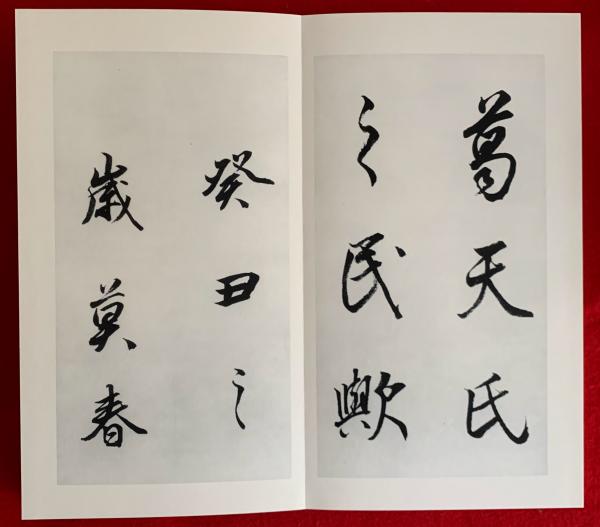 葛天氏
之民歟
癸丑之
歳莫春